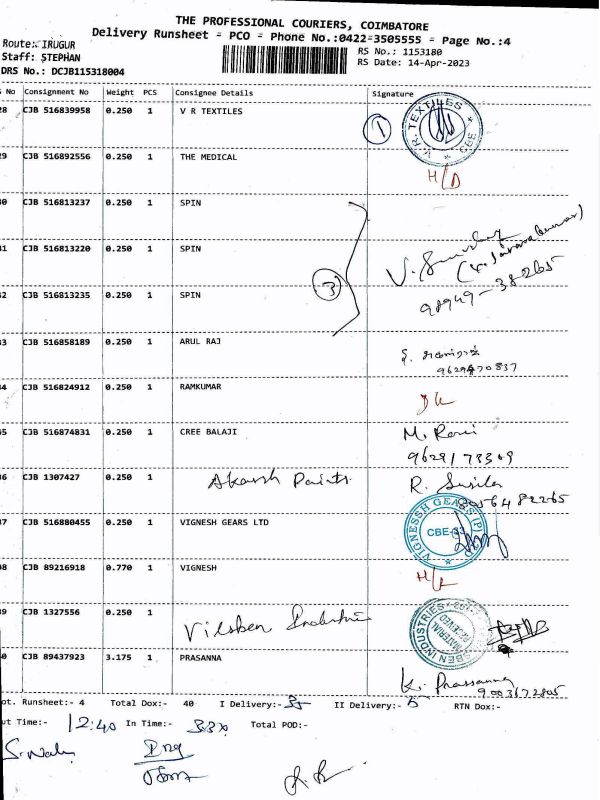 THE PROFESSIONAL COURIERS, COIMBATORE
Delivery Runsheet = PCO = Phone No.:0422-3505555 = Page No.:4
Route: IRUGUR
RS No.: 1153180
Staff: STEPHAN
RS Date: 14-Apr-2023
DRS No.: DCJB115318004
No Consignment No Weight PCS Consignee Details Signature
28 CJB 516839958 0.250 1 V R TEXTILES 1 V.R. TEXTILES CBE
29 CJB 516892556 0.250 1 THE MEDICAL H/D
30 CJB 516813237 0.250 1 SPIN
31 CJB 516813220 0.250 1 SPIN 3
32 CJB 516813235 0.250 1 SPIN 98949-38265
33 CJB 516858189 0.250 1 ARUL RAJ
34 CJB 516824912 0.250 1 RAMKUMAR
35 CJB 516874831 0.250 1 CREE BALAJI M. Ravi
36 CJB 1307427 0.250 1 Akarsh Paints R. Susila
37 CJB 516880455 0.250 1 VIGNESH GEARS LTD VIGNESSH GEARS (P) LTD CBE-33
38 CJB 89216918 0.770 1 VIGNESH
39 CJB 1327556 0.250 1 Vilsben Industries VILSBEN INDUSTRIES MATERIAL RECEIVED
40 CJB 89437923 3.175 1 PRASANNA K. Prassanna
Tot. Runsheet:- 4 Total Dox:- 40 I Delivery:- 35 II Delivery:- 5 RTN Dox:-
Out Time:- 12:40 In Time:- Total POD:-